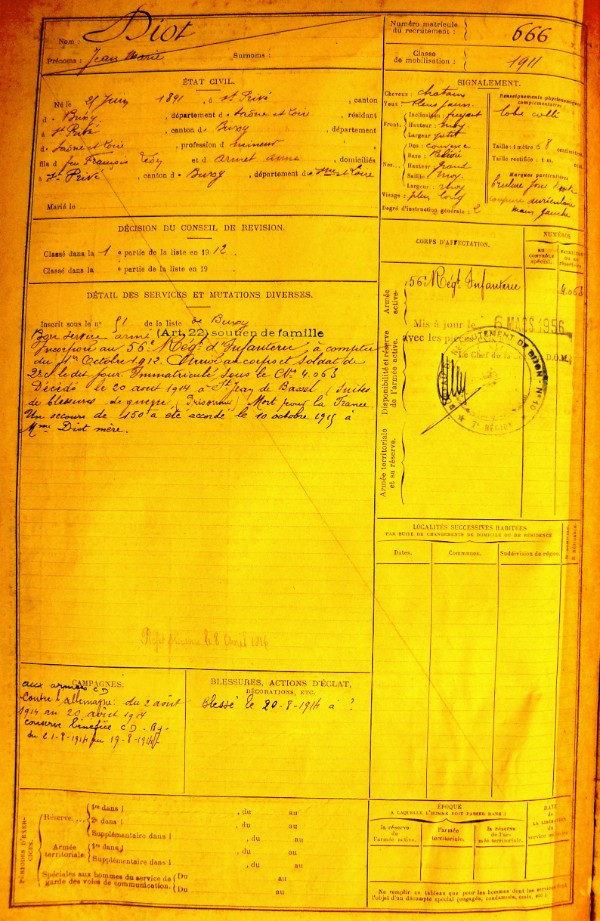 Nom : Diot
Prénoms : Jean Marie Surnoms :
Numéro matricule du recrutement : 666
Classe de mobilisation : 1911
ÉTAT CIVIL.
Né le 25 1891, à St Privé, canton
d , département de Saône et Loire, résidant
à St Privé, canton de Buxy, département
de Saône et Loire, profession de
fils de feu François et d anna, domiciliés
à St Privé, canton de Buxy, département de
Marié le
SIGNALEMENT.
Cheveux : chatains
Yeux :
Front. Inclinaison : fuyant
Hauteur : moy
Largeur : petit
Nez. Dos :
Base :
Hauteur : grand
Saillie : moy
Largeur : moy
Visage : plein long
Degré d'instruction générale : 2
Renseignements physionomiques complémentaires :
lobe collé
Taille : 1 mètre 58 centimètres
Taille rectifiée : 1 m. cent.
Marques particulières
main gauche
DÉCISION DU CONSEIL DE REVISION.
Classé dans la 1 e partie de la liste en 1912
Classé dans la e partie de la liste en 19
DÉTAIL DES SERVICES ET MUTATIONS DIVERSES.
Inscrit sous le n° 51 de la liste de Buxy
Bon service armé (Art. 22) soutien de famille
Incorporé au 56e Régt d'Infanterie, à compter
du Octobre 1912. Arrivé au corps et soldat de
2e Cl le dit jour. Immatriculé sous le No 4.063
Décédé le 20 aout 1914 à St Jean de Bassel, Suites
de blessures de guerre, Prisonnier, Mort pour la France
Un secours de 150 a été accordé le 10 octobre 1915 à
Mme Diot mère.
CORPS D'AFFECTATION.
NUMÉROS
AU CONTRÔLE SPÉCIAL.
Armée active.
56e Régt Infanterie
4.063
Mis à jour le 6 MARS 1956
avec les
Le Chef de D.O.M.
Disponibilité et réserve de l'armée active.
Armée territoriale et sa réserve.
LOCALITÉS SUCCESSIVES HABITÉES
PAR SUITE DE CHANGEMENTS DE DOMICILE OU DE RÉSIDENCE
Dates. Communes. Subdivision de région.
CAMPAGNES.
aux armées CD
Contre l'allemagne : du 2 août
1914 au 20 août 1914
BLESSURES, ACTIONS D'ÉCLAT,
DÉCORATIONS, ETC.
Blessé le 20-8-1914 à ?
PÉRIODES D'EXERCICES.
Réserve. 1re dans l , du au
2e dans l , du au
Supplémentaire dans l , du au
Armée territoriale 1re dans l , du au
Supplémentaire dans l , du au
Spéciales aux hommes du service de garde des voies de communication. Du au
Du au
ÉPOQUE
À LAQUELLE L'HOMME DOIT PASSER DANS :
la réserve de l'armée active.
l'armée territoriale.
la réserve de l'armée territoriale.
DATE
Ne remplir ce tableau que pour les hommes dont les services
l'objet d'un décompte spécial (engagés, condamnés, omis, etc.)